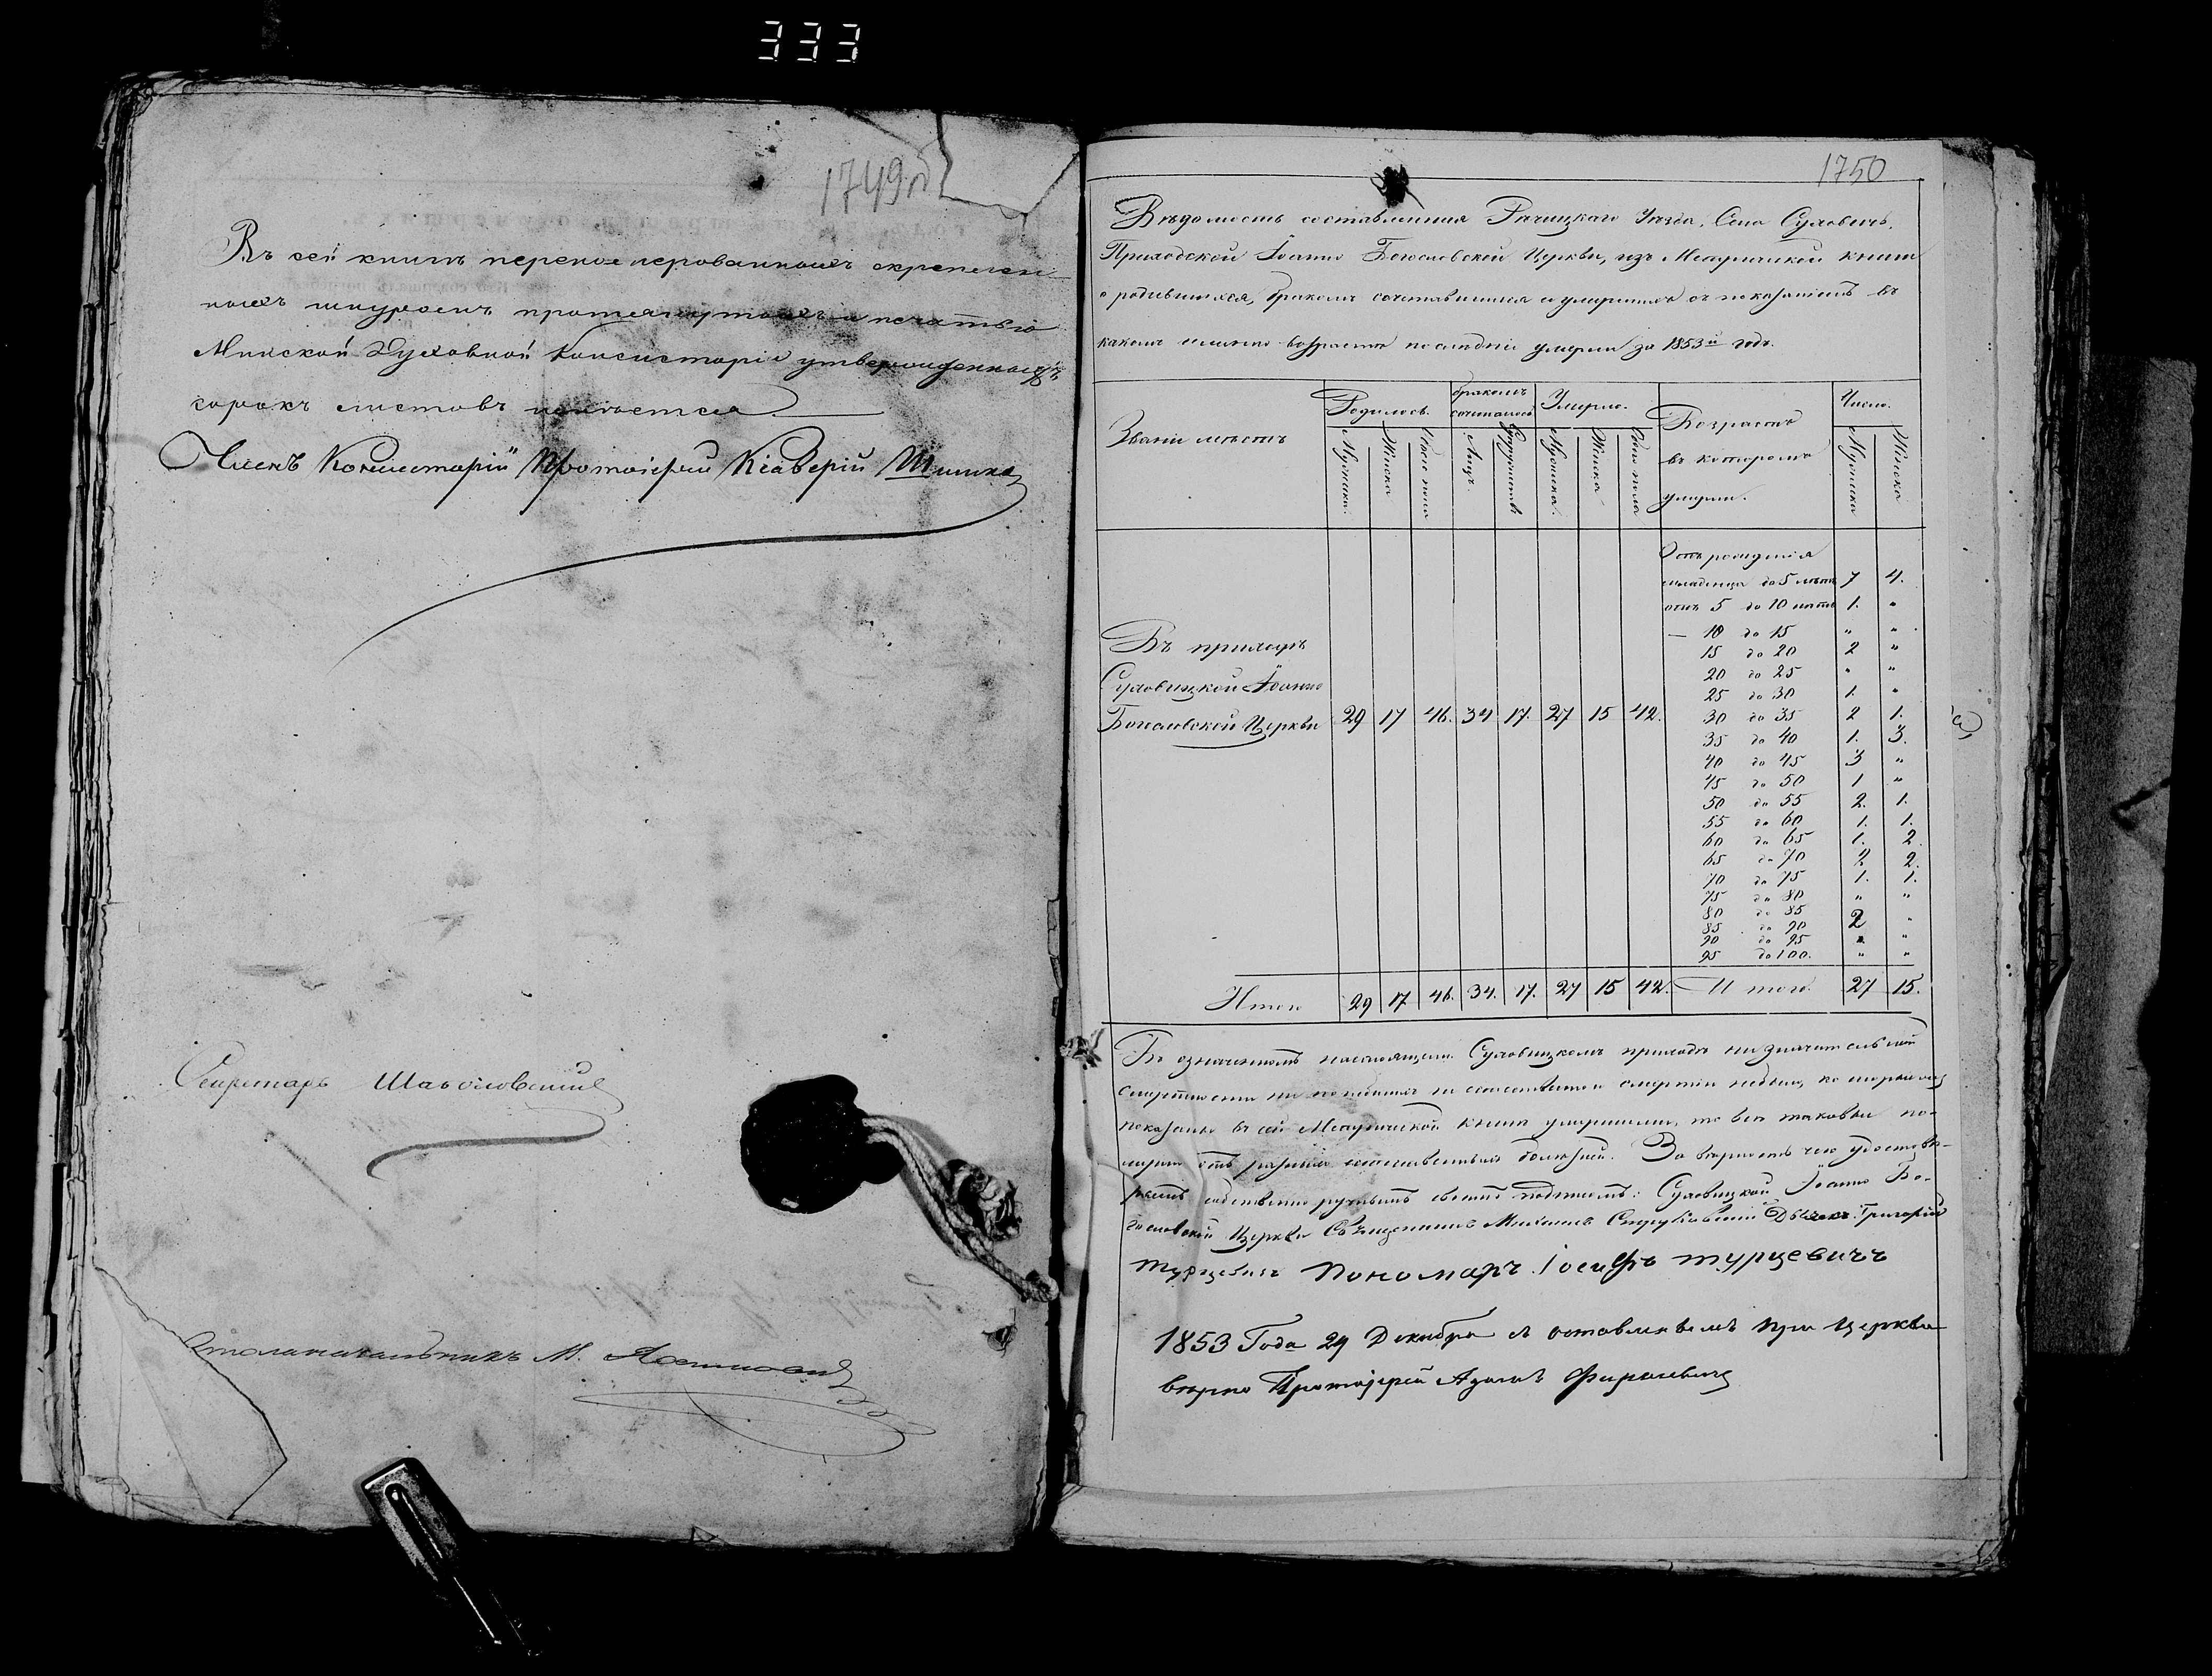 333
1749об
Въ сей книгѣ перенумерованныхъ скрепленныхъ шнуромъ
Минской Духовной Консисторіи утвержденныхъ
сорокъ листовъ имѣется
Членъ Консисторіи Протоіерей Ксаверій Шишка
Секретарь
Столоначальникъ М.
1750
Вѣдомость составленная Рѣчицкаго Уѣзда, Села Суховичъ,
Приходской Іоанно Богословской Церкви, изъ Метрической книги
о родившихся, бракомъ сочетавшихся и умершихъ съ показаніемъ въ
какомъ именно возрастѣ послѣдніе умерли за 1853й годъ.
Званіе мѣстъ
Родилось.
Мужска.
Женска
Обоего пола
бракомъ сочеталось
Лицъ.
Супружествъ
Умерло.
Мужска.
Женска
Обоего пола
Возрастъ
въ которомъ
умерли.
Число.
Мужска
Женска
Отъ рожденія
младенца до 5 лѣтъ 7 4.
отъ 5 до 10 лѣтъ 1. "
— 10 до 15 " "
15 до 20 2 "
20 до 25 " "
25 до 30 1. "
Въ приходѣ
Суховицкой Іоанно
Богословской Церкви 29 17 46. 34 17. 27 15 42. 30 до 35 2 1.
35 до 40 1. 3.
40 до 45 3 "
45 до 50 1 "
50 до 55 2. 1.
55 до 60 1. 1.
60 до 65 1. 2.
65 до 70 2 2.
70 до 75 1. 1.
75 до 80 " "
80 до 85
85 до 90 2 "
90 до 95 " "
95 до 100. " "
Итого 29 17 46. 34. 17. 27 15 42. Итого. 27 15.
Въ означенномъ настоящемъ Суховицкомъ приходѣ незначительной
показаны въ сей Метрической книгѣ умершими, то всѣ таковые по-
мерли отъ разныхъ болѣзней. Въ вѣрности чего удостовѣ-
ряемъ собственно ручнымъ своимъ подписомъ: Суховицкой Іоанно Бо-
гословской Церкви Священникъ Михаилъ Дьячекъ Григорій
Турцевичъ Пономарь Іосифъ Турцевичъ
1853 Года 29 Декабря съ оставленнымъ при Церкви
вѣрно Протоіерей Адамъ